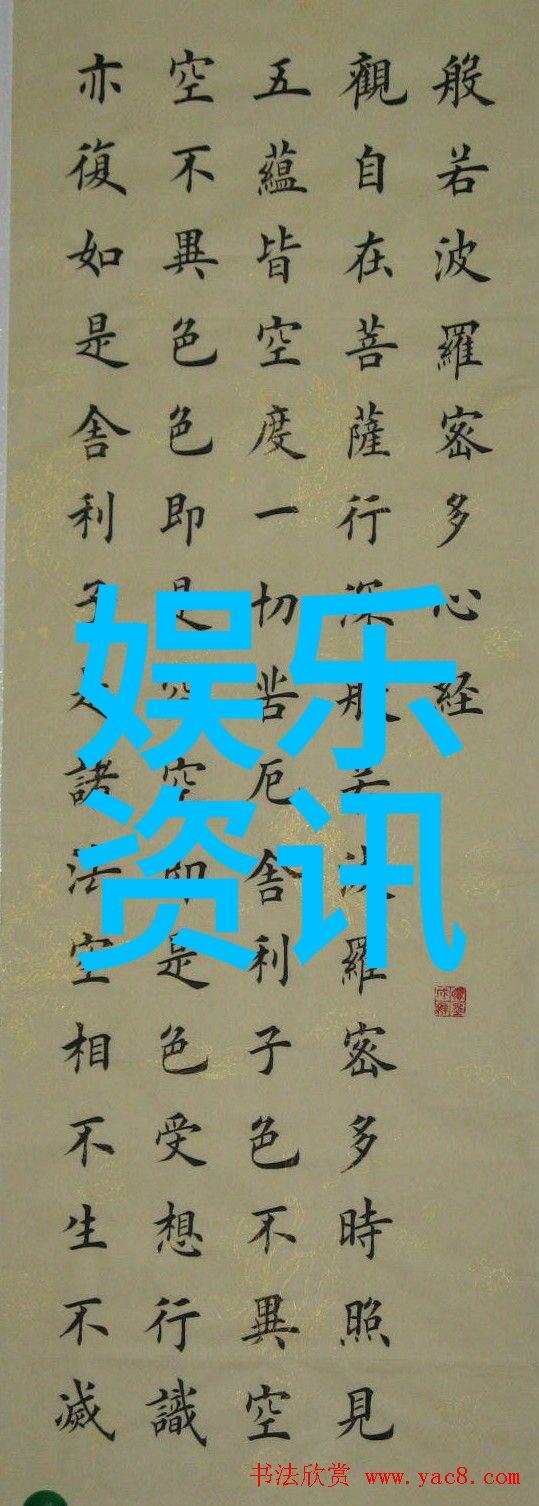 般若波羅密多心経
觀自在菩薩行深般若波羅密多時照見
五蘊皆空度一切苦厄舎利子色不異空
空不異色色即是空空即是色受想行識
亦復如是舎利子是諸法空相不生不滅
娱乐
资讯
书法欣赏 www.yac8.com